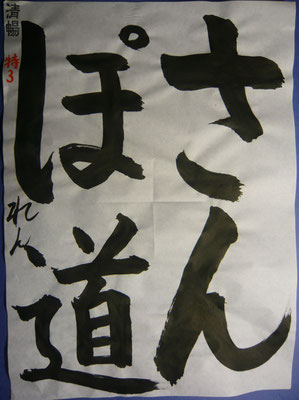 さん
ぽ道
清暢
特3
れん